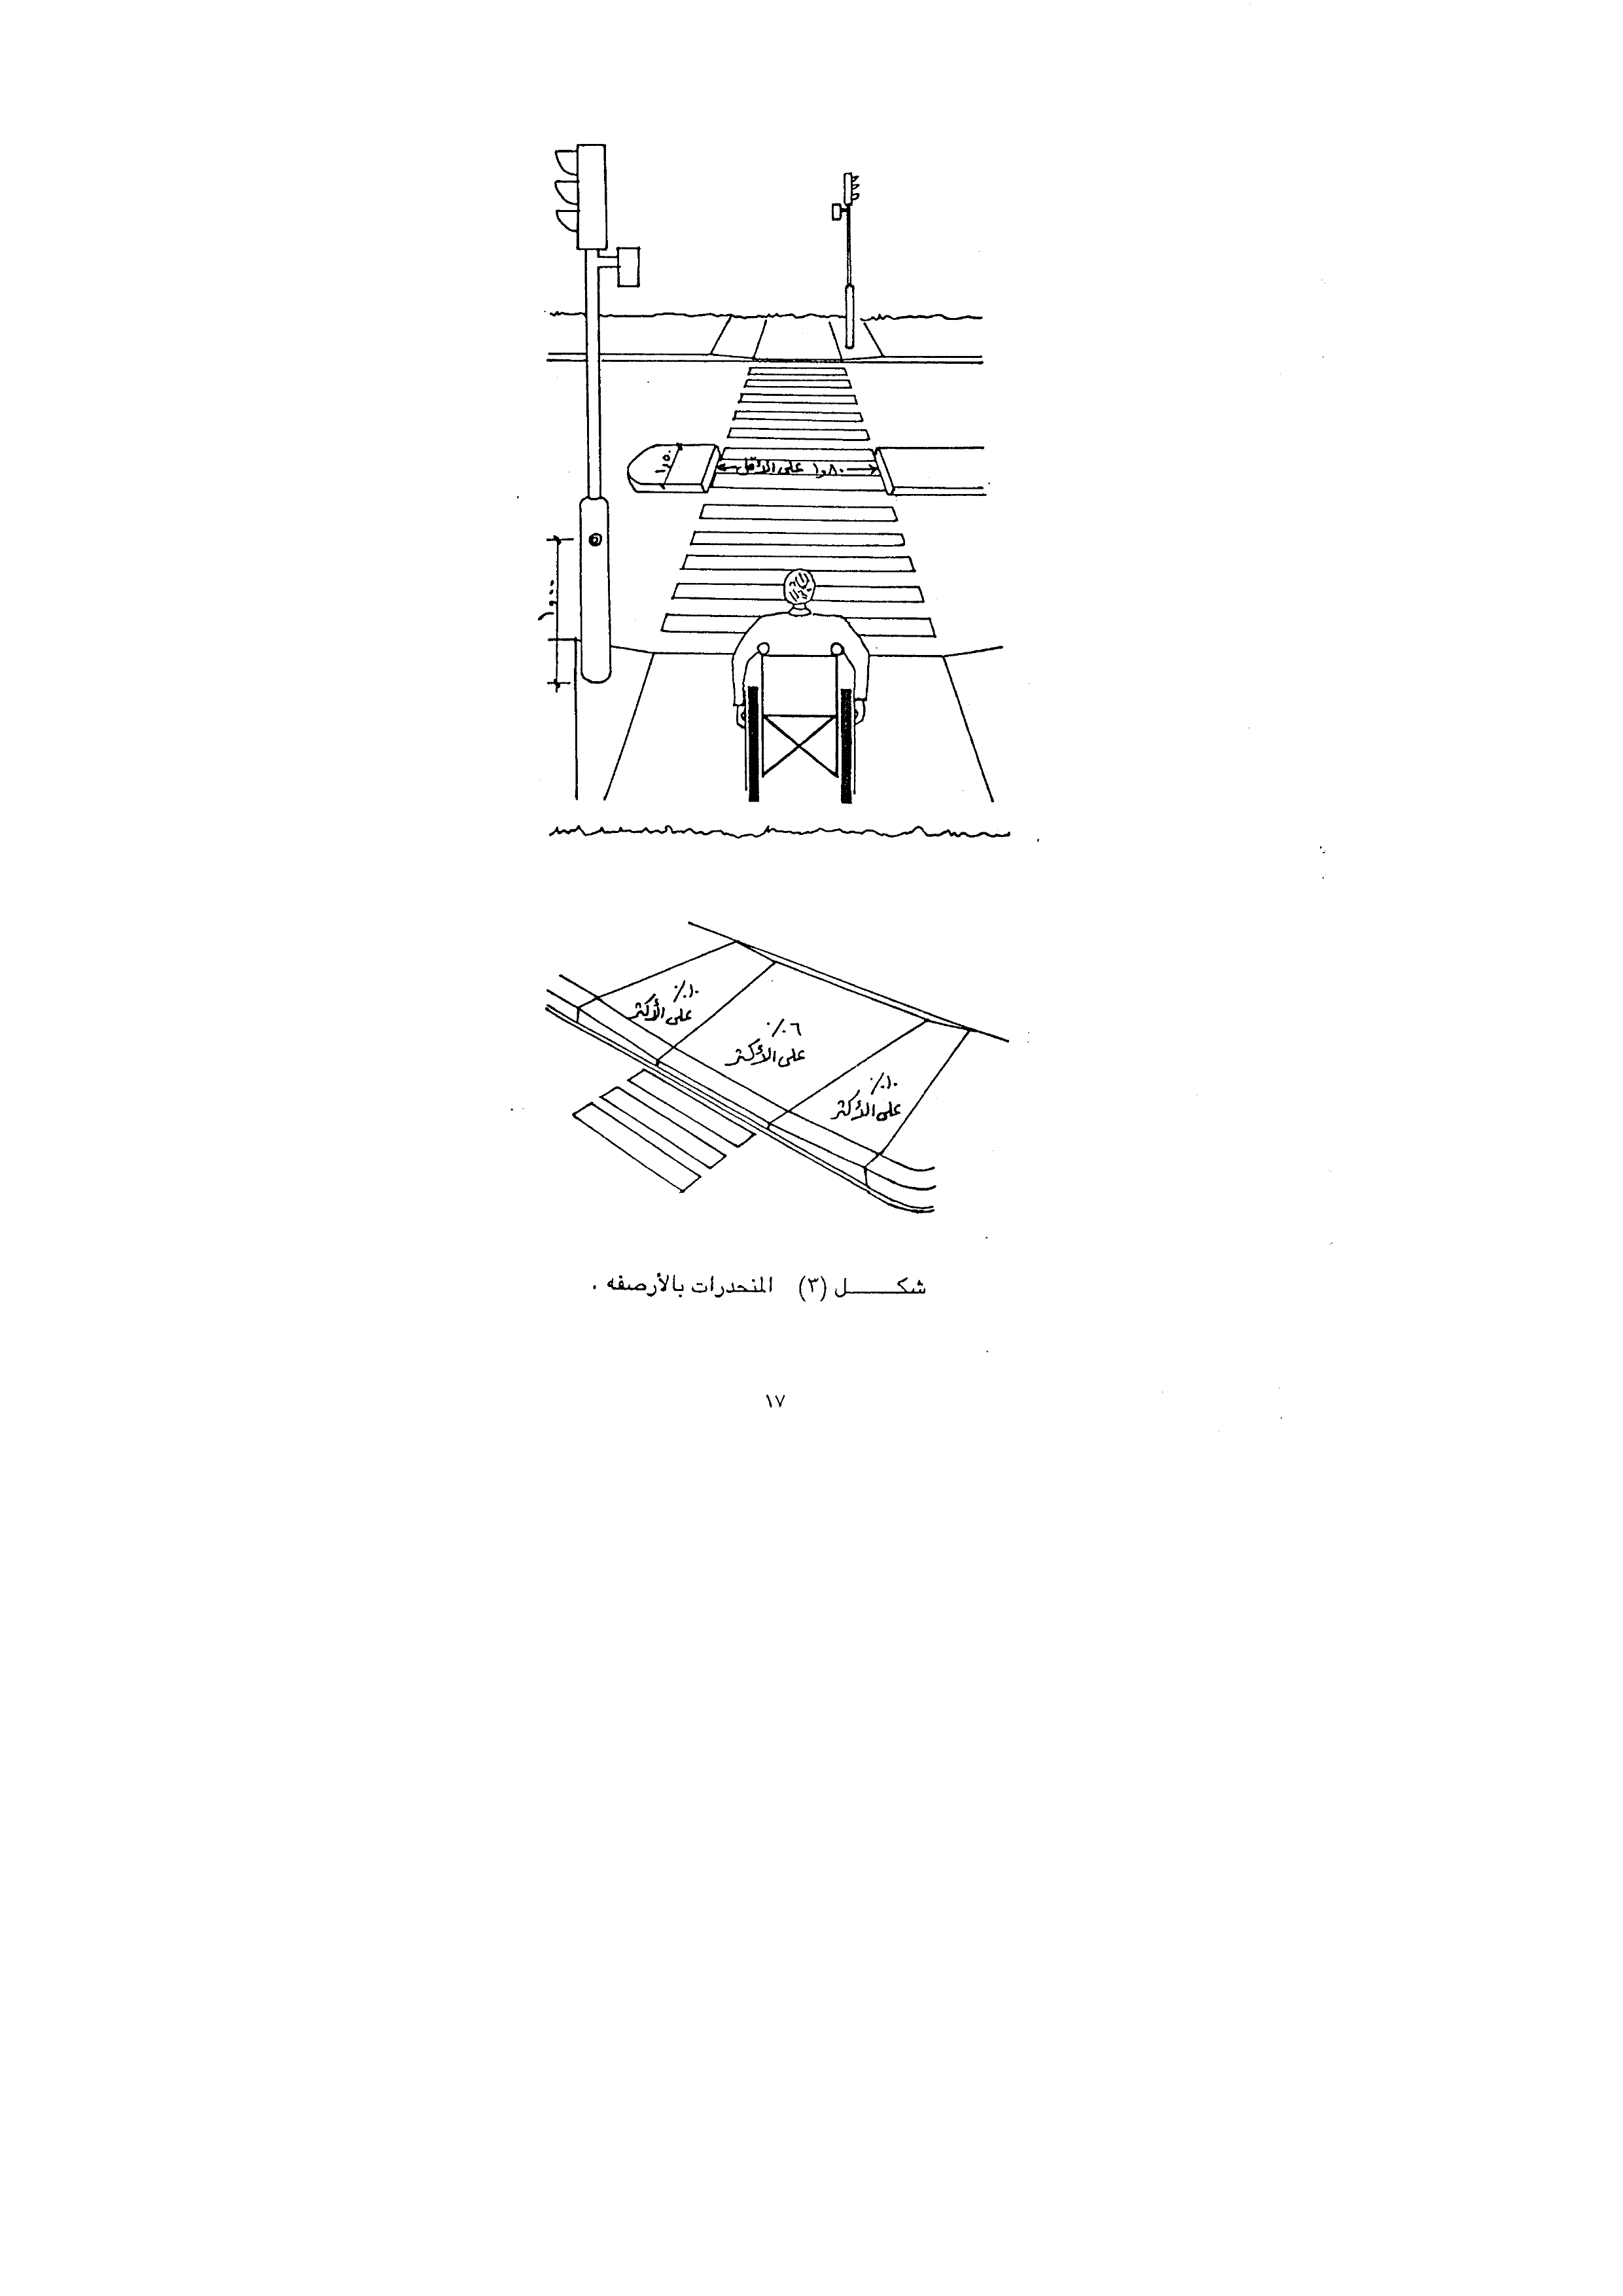 ١,٥٠
١,٨٠ على الأقل
١,٠٠
١٠٪
على الأكثر
٦٪
على الأكثر
١٠٪
على الأكثر
شكـــــل (٣) المنحدرات بالأرصفه .
١٧